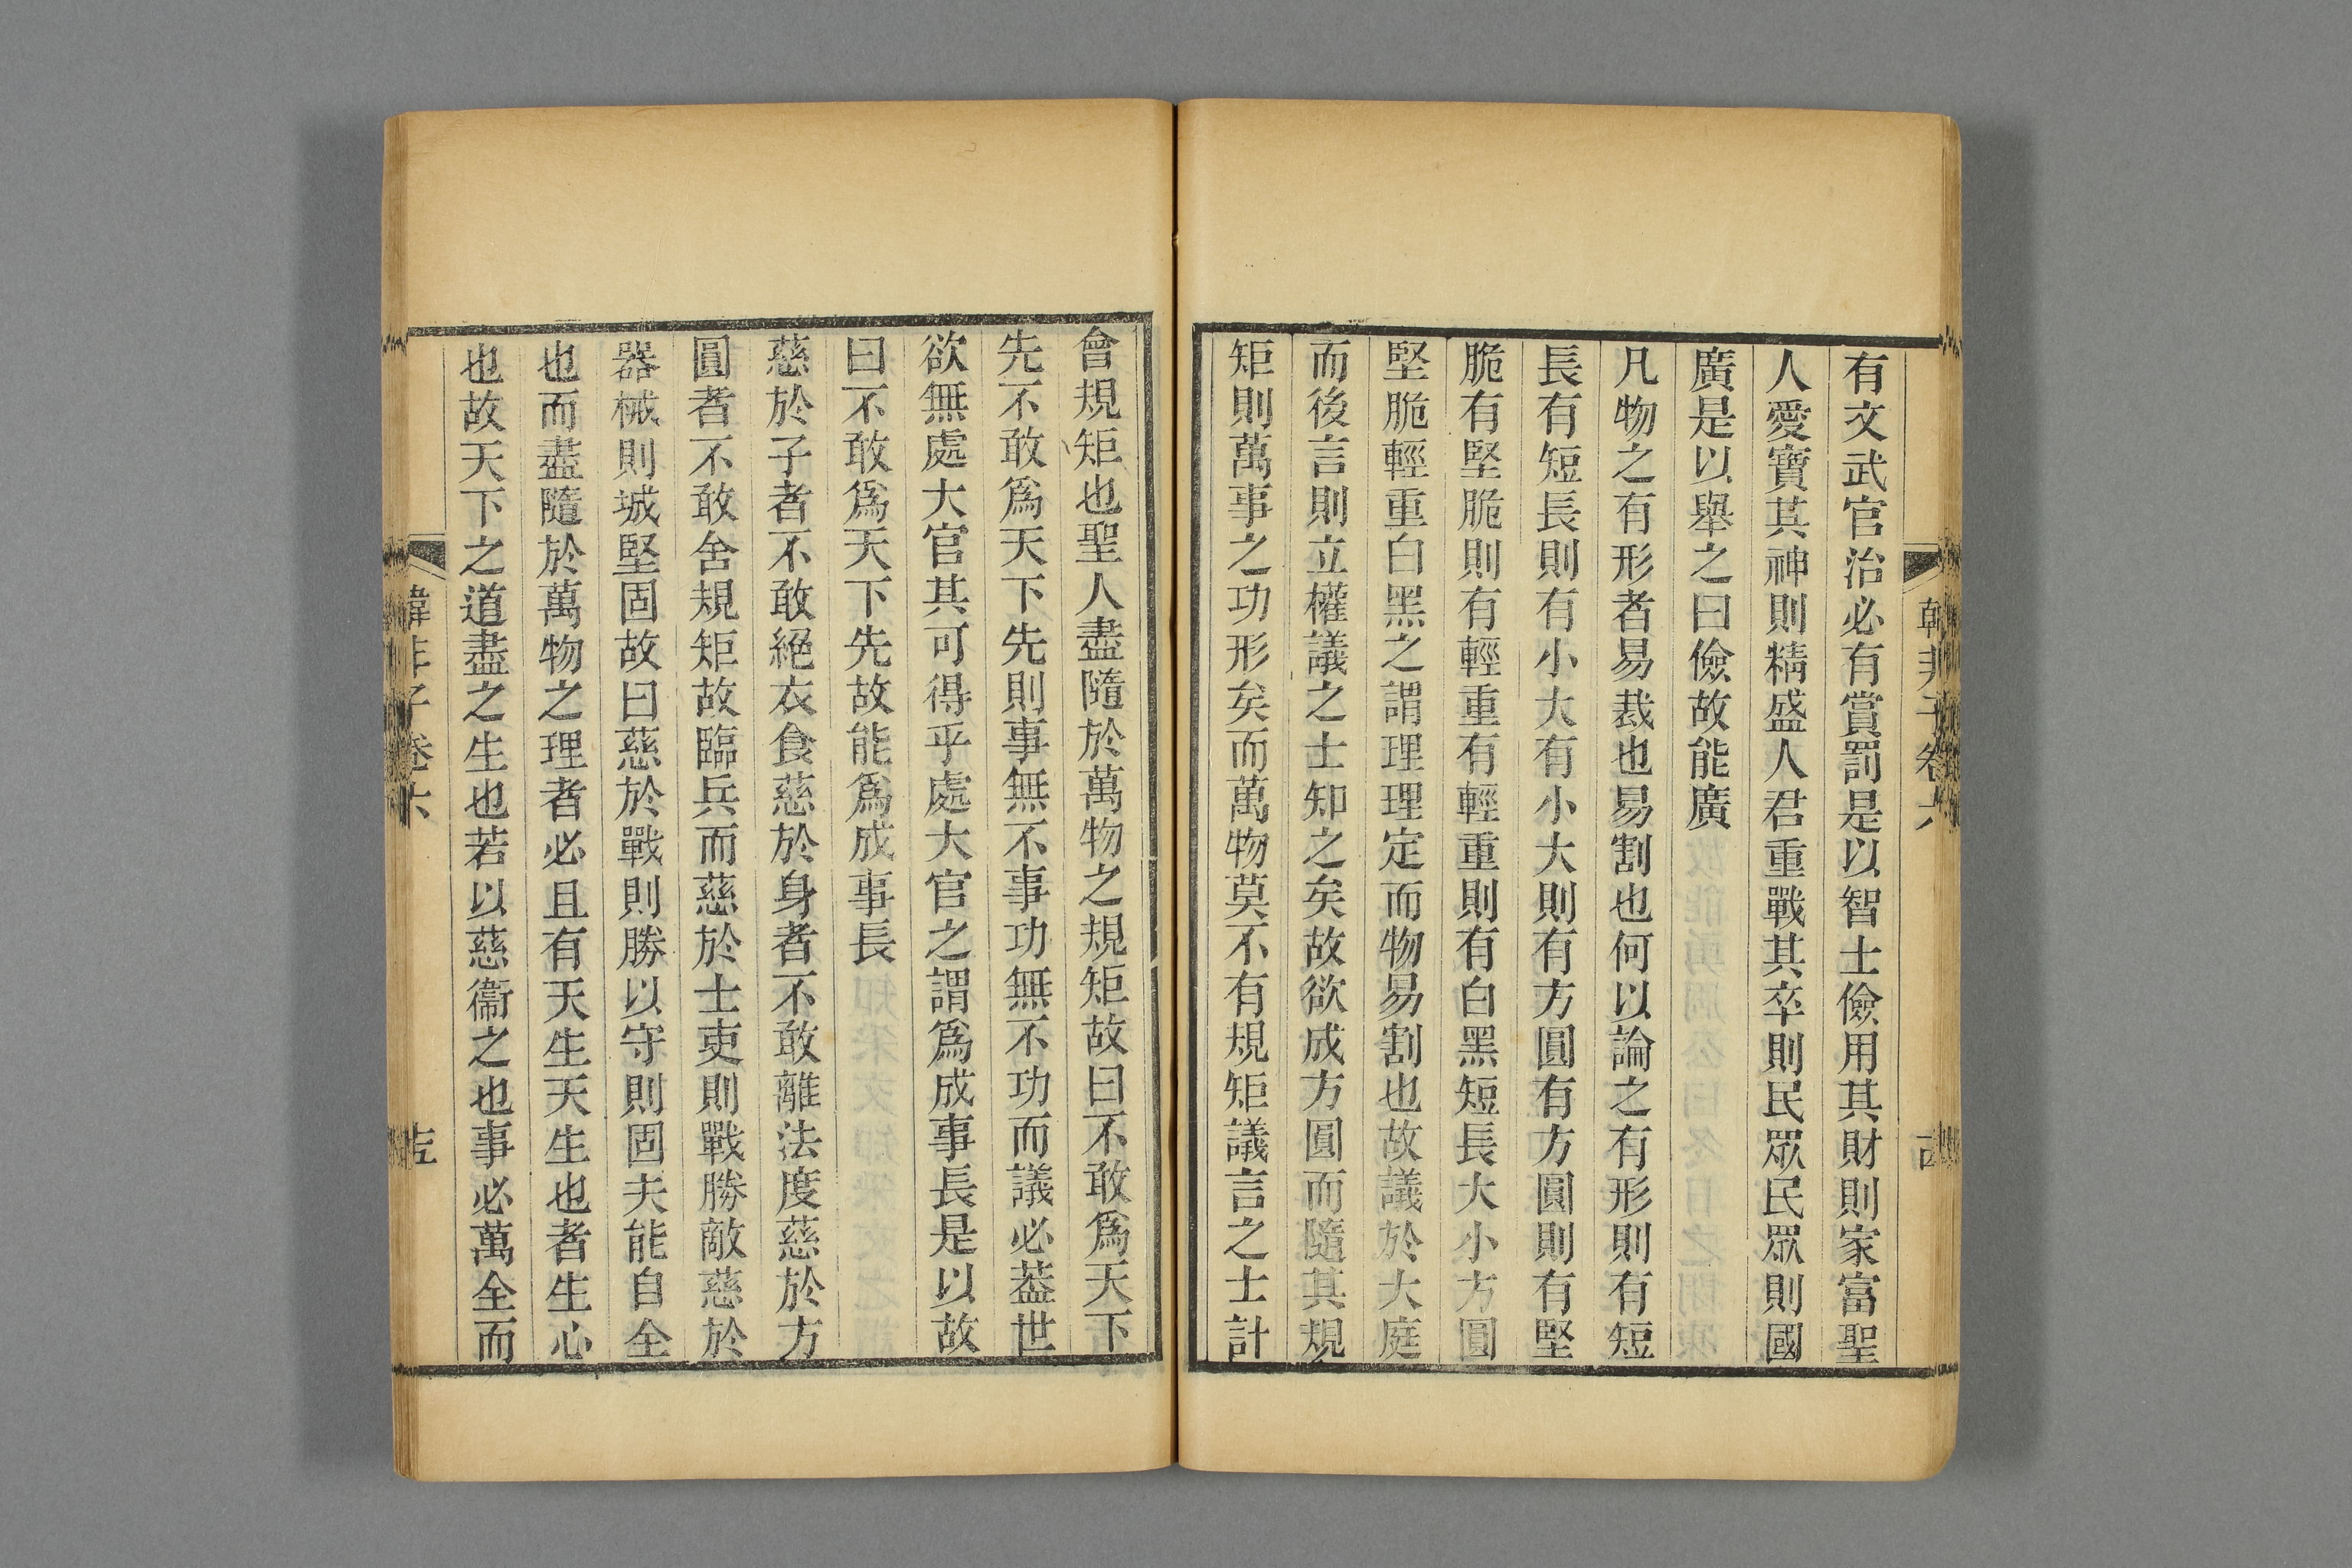 有文武官治必有賞罰是以智士儉用其財則家富聖
人愛寶其神則精盛人君重戰其卒則民眾民眾則國
廣是以舉之曰儉故能廣
凡物之有形者易裁也易割也何以論之有形則有短
長有短長則有小大有小大則有方圓有方圓則有堅
脆有堅脆則有輕重有輕重則有白黑短長大小方圓
堅脆輕重白黑之謂理理定而物易割也故議於大庭
而後言則立權議之士知之矣故欲成方圓而隨其規
矩則萬事之功形矣而萬物莫不有規矩議言之士計
會規矩也聖人盡隨於萬物之規矩故曰不敢爲天下
先不敢爲天下先則事無不事功無不功而議必葢世
欲無處大官其可得乎處大官之謂爲成事長是以故
曰不敢爲天下先故能爲成事長
慈於子者不敢絕衣食慈於身者不敢離法度慈於方
圓者不敢舍規矩故臨兵而慈於士吏則戰勝敵慈於
器械則城堅固故曰慈於戰則勝以守則固夫能自全
也而盡隨於萬物之理者必且有天生天生也者生心
也故天下之道盡之生也若以慈衞之也事必萬全而
韓非子卷六